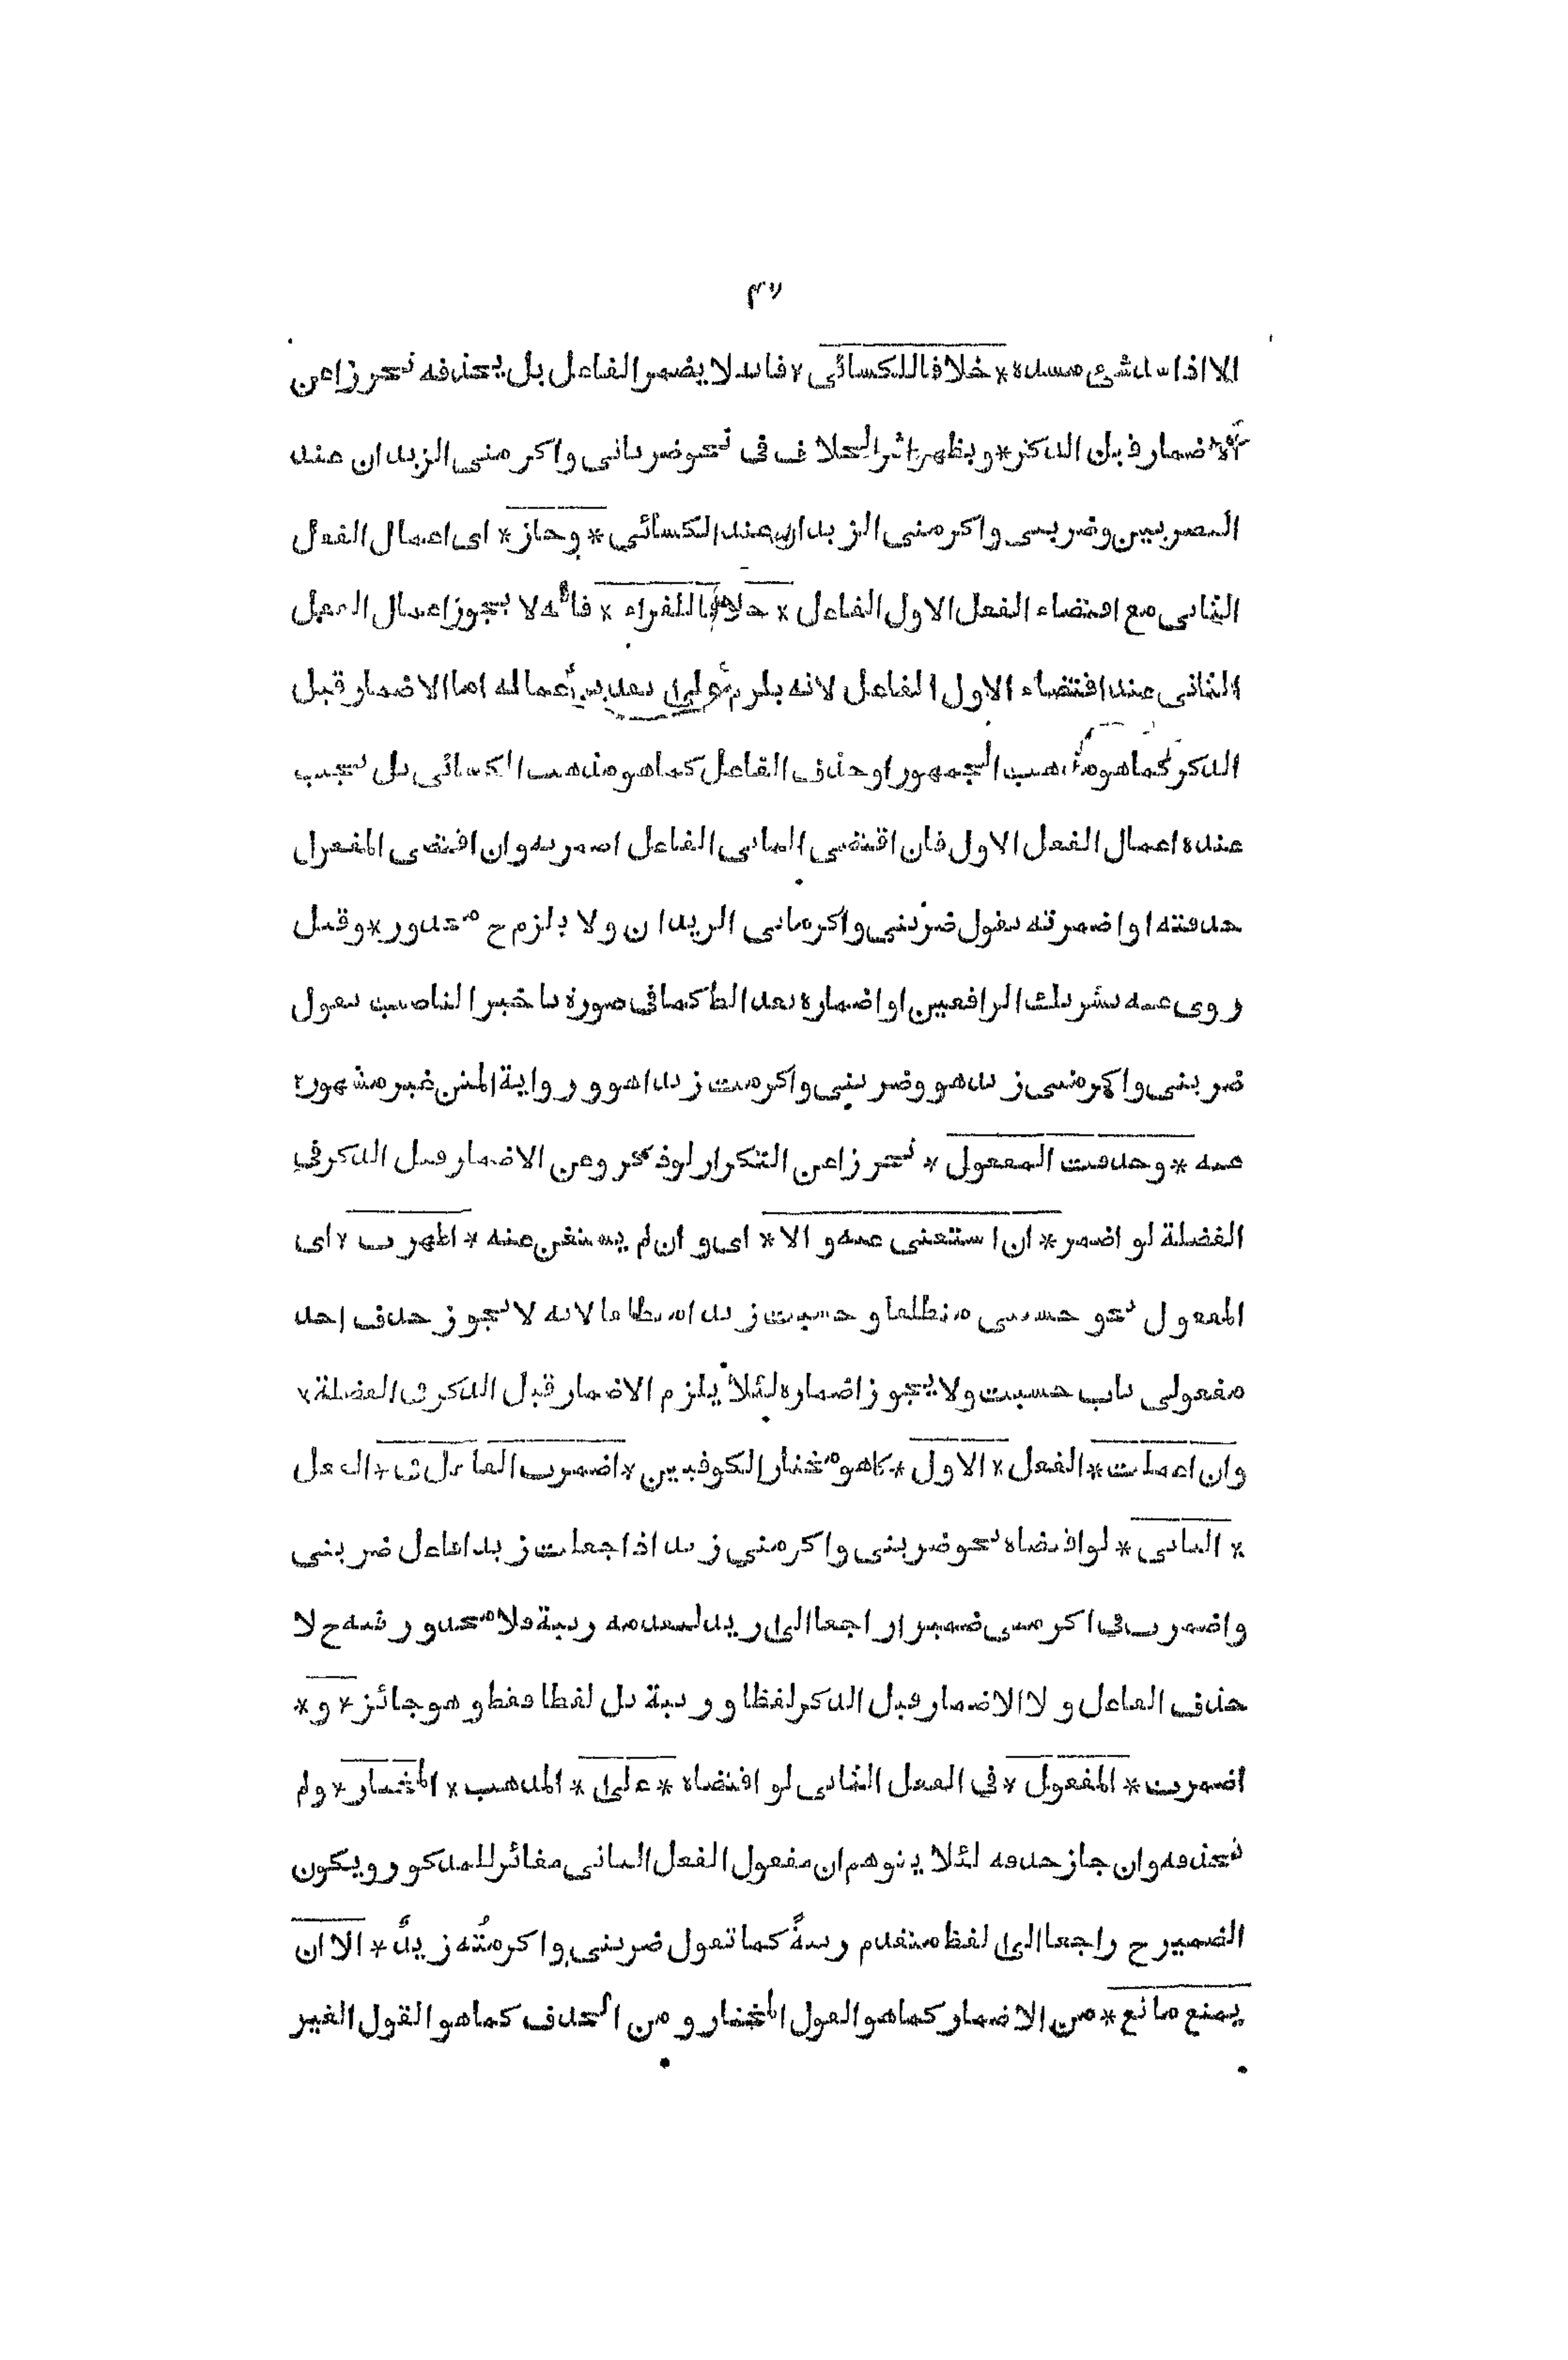 ٤٧
الا اذا سد شئ مسده * خلافا للكسائى * فانه لا يضمر الفاعل بل يحذفه تحرزا عن
الاضمار قبل الذكر * ويظهر اثر الخلاف فى نحو ضربانى واكرمنى الزيدان عند
البصريين وضربنى واكرمنى الزيدان عند الكسائى * وجاز * اى اعمال الفعل
الثانى مع اقتضاء الفعل الاول الفاعل * خلافا للفراء * فانه لا يجوز اعمال الفعل
الثانى عند اقتضاء الاول الفاعل لانه يلزم على تقدير اعماله اما الاضمار قبل
الذكر كما هو مذهب الجمهور او حذف الفاعل كما هو مذهب الكسائى بل يجب
عنده اعمال الفعل الاول فان اقتضى الثانى الفاعل اضمرته وان اقتضى المفعول
حذفته او اضمرته تقول ضربنى واكرمانى الزيدان ولا يلزم ح محذور * وقيل
روى عنه تشريك الرافعين او اضماره بعد الظ كما فى صورة تاخير الناصب تقول
ضربنى واكرمنى زيد هو وضربنى واكرمت زيدا هو ورواية المتن غير مشهورة
عنه * وحذفت المفعول * تحرزا عن التكرار لو ذكر وعن الاضمار قبل الذكر فى
الفضلة لو اضمر * ان استغنى عنه والا * اى وان لم يستغن عنه * اظهرت * اى
المفعول نحو حسبنى منطلقا وحسبت زيدا منطلقا لانه لا يجوز حذف احد
مفعولى باب حسبت ولا يجوز اضماره لئلا يلزم الاضمار قبل الذكر فى الفضلة *
وان اعملت * الفعل * الاول * كما هو مختار الكوفيين * اضمرت الفاعل فى * الفعل
* الثانى * لو اقتضاه نحو ضربنى واكرمنى زيد اذا جعلت زيدا فاعل ضربنى
واضمرت فى اكرمنى ضميرا راجعا الى زيد لتقدمه رتبة فلا محذور فيه ح لا
حذف الفاعل ولا الاضمار قبل الذكر لفظا ورتبة بل لفظا فقط وهو جائز * و *
اضمرت * المفعول * فى الفعل الثانى لو اقتضاه * على * المذهب * المختار * ولم
تحذفه وان جاز حذفه لئلا يتوهم ان مفعول الفعل الثانى مغائر للمذكور ويكون
الضمير ح راجعا الى لفظ متقدم رتبةً كما تقول ضربنى واكرمتُه زيدٌ * الا ان
يمنع مانع * من الاضمار كما هو القول المختار ومن الحذف كما هو القول الغير